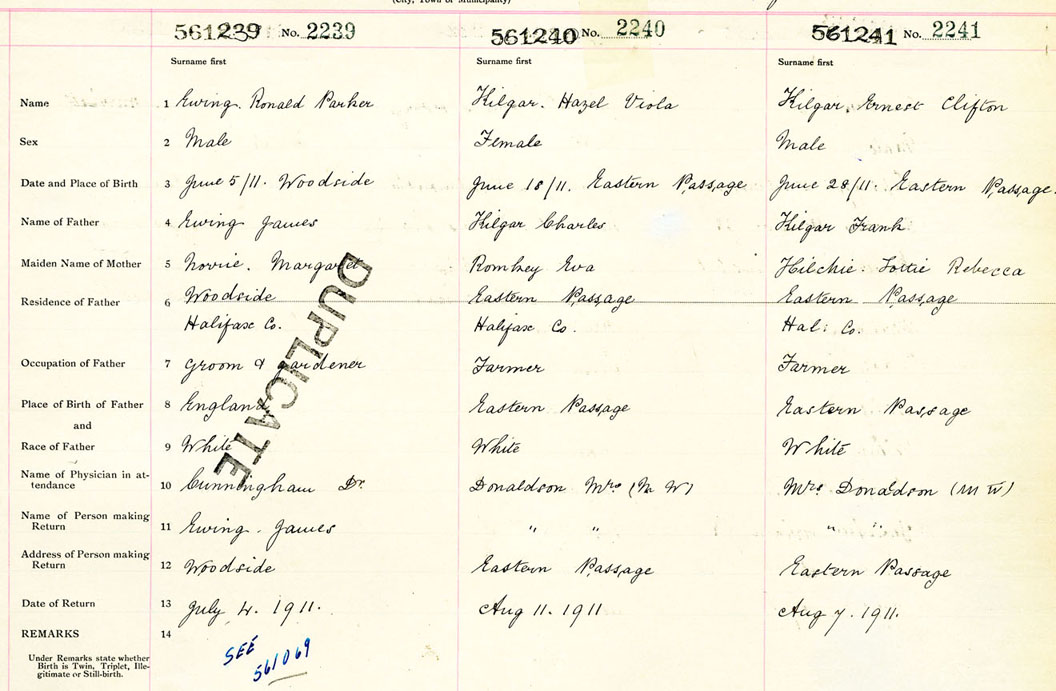 (City, Town or Municipality)
561239 No. 2239 561240 No. 2240 561241 No. 2241
Surname first Surname first Surname first
Name 1 Ewing. Ronald Parker Kilgar. Hazel Viola Kilgar. Ernest Clifton
Sex 2 Male Female Male
Date and Place of Birth 3 June 5/11. Woodside June 18/11. Eastern Passage June 28/11. Eastern Passage.
Name of Father 4 Ewing James Kilgar Charles Kilgar Frank
Maiden Name of Mother 5 Norrie. Margaret Romkey Eva Hilchie. Lottie Rebecca
Residence of Father 6 Woodside Eastern Passage Eastern Passage
Halifax Co. Halifax Co. Hal: Co.
Occupation of Father 7 Groom & gardener Farmer Farmer
Place of Birth of Father 8 England Eastern Passage Eastern Passage
and
Race of Father 9 White White White
Name of Physician in at-
tendance 10 Cunningham Dr. Donaldson Mrs (M W) Mrs Donaldson (M W)
Name of Person making
Return 11 Ewing. James " " " "
Address of Person making
Return 12 Woodside Eastern Passage Eastern Passage
Date of Return 13 July 4. 1911. Aug 11. 1911 Aug 7. 1911.
REMARKS 14
Under Remarks state whether
Birth is Twin, Triplet, Ille-
gitimate or Still-birth.
SEE
561069
DUPLICATE